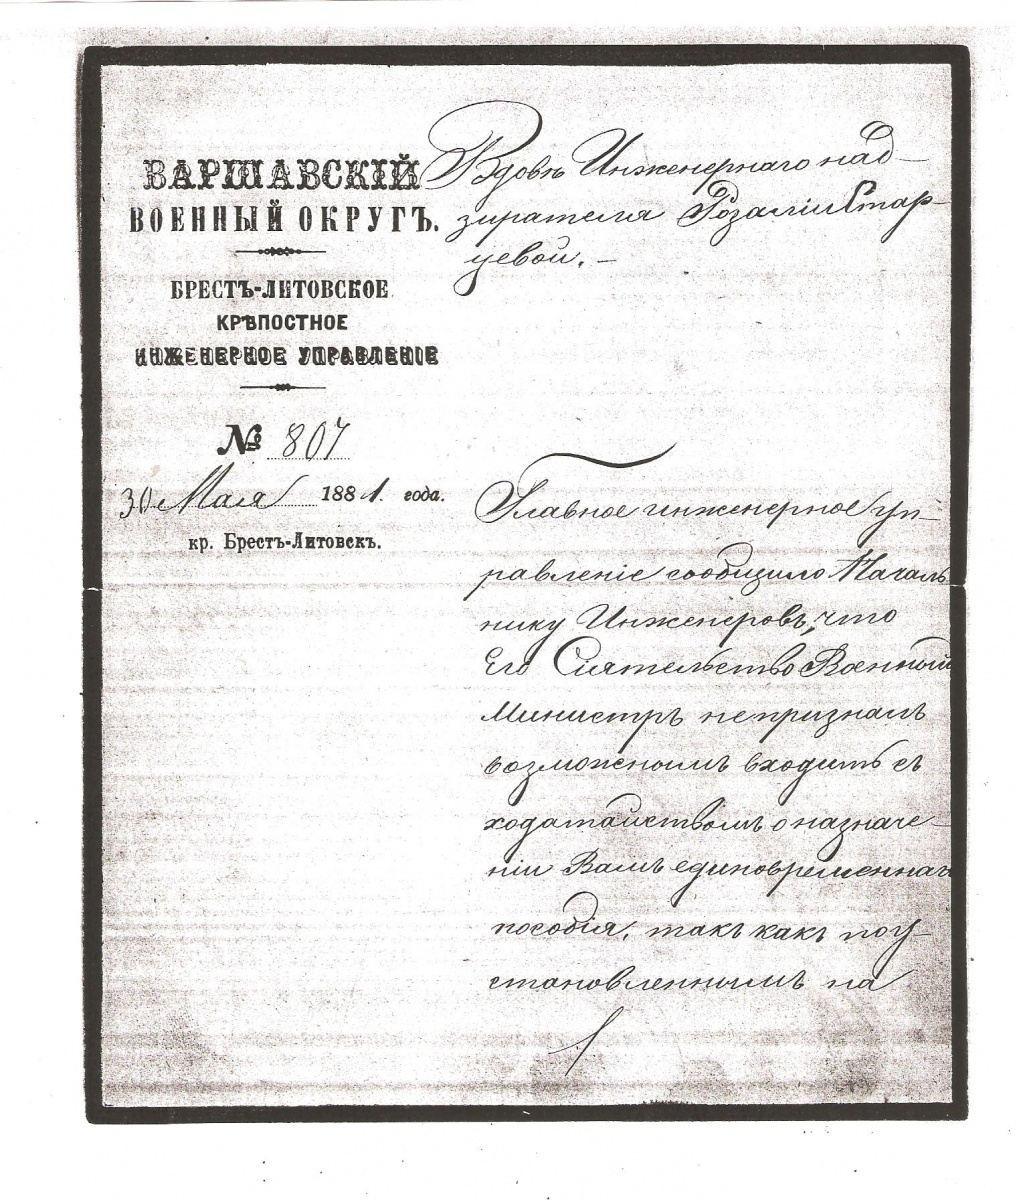 ВАРШАВСКІЙ
ВОЕННЫЙ ОКРУГЪ.
БРЕСТЪ-ЛИТОВСКОЕ
КРѢПОСТНОЕ
ИНЖЕНЕРНОЕ УПРАВЛЕНІЕ
№ 807
30 Мая 1881. года.
кр. Брестъ-Литовскъ.
Вдовѣ Инженернаго над-
зирателя Розаліи Стар-
цевой. –
Главное инженерное уп-
равленіе сообщило Началь
нику Инженеровъ, что
Его Сіятельство Военный
Министръ не призналъ
возможнымъ входить съ
ходатайствомъ о назначе-
ніи Вамъ единовременнаго
пособія, такъ какъ по у-
становленнымъ на